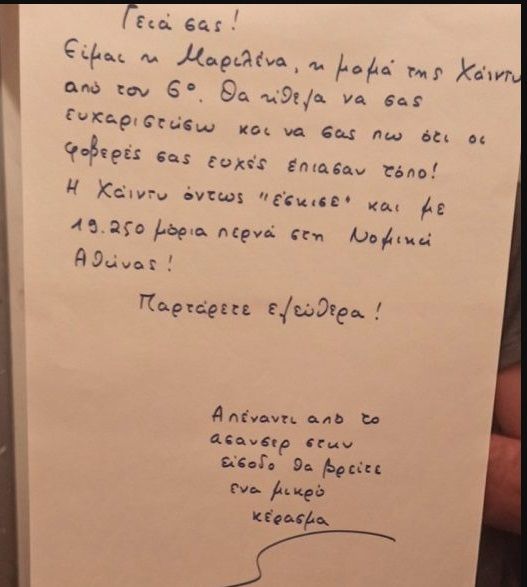 Γειά σας!
Είμαι η Μαριλένα, η μαμά της Χάιντυ
από τον 6ο. Θα ήθελα να σας
ευχαριστήσω και να σας πω ότι οι
φοβερές σας ευχές έπιασαν τόπο!
Η Χάιντυ όντως "έσκισε" και με
19.250 μόρια περνά στη Νομική
Αθήνας!
Παρτάρετε ελεύθερα!
Απέναντι από το
ασανσερ στην
είσοδο θα βρείτε
ενα μικρό
κέρασμα